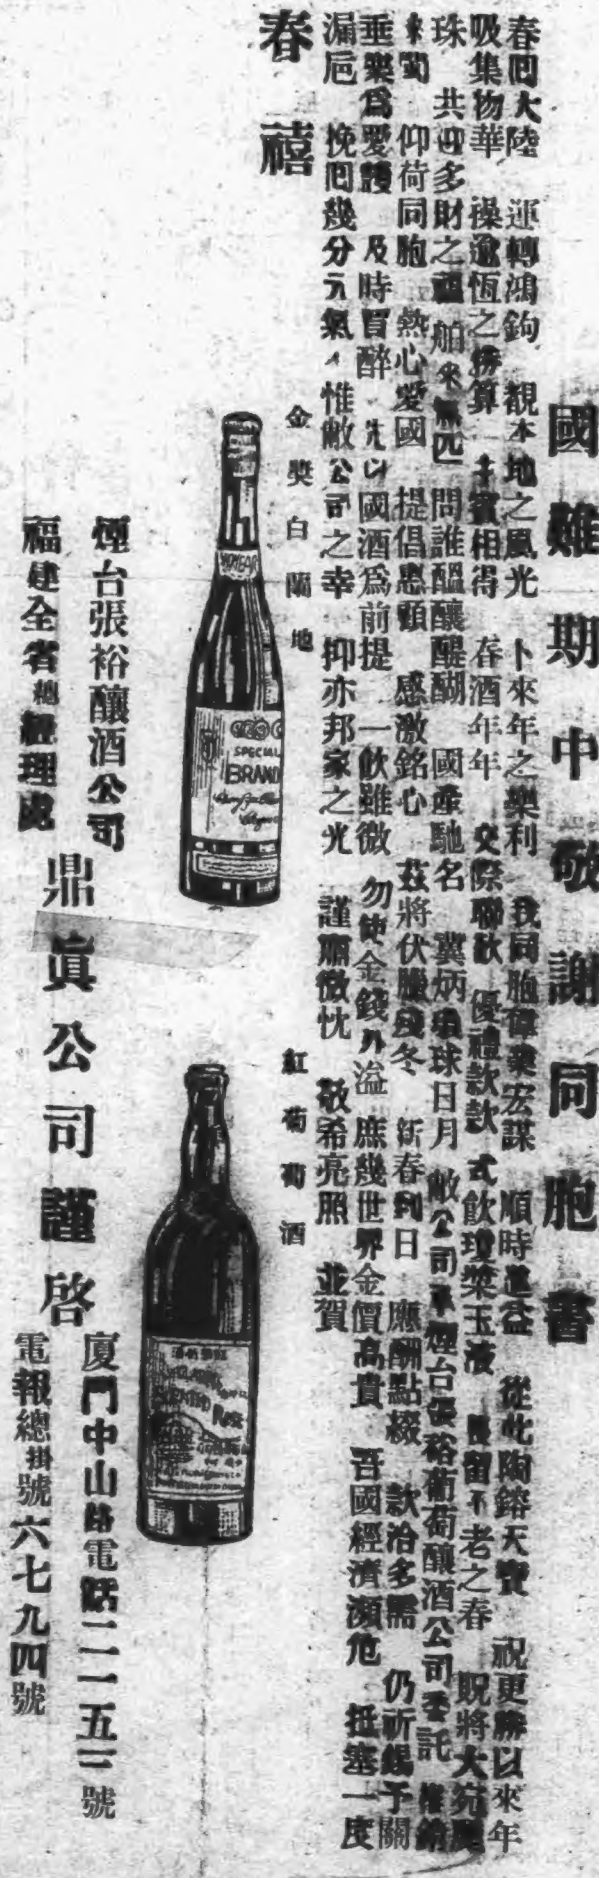 國難期中敬謝同胞書
春回大陸　運轉鴻鈞　觀本地之風光　卜來年之樂利　我同胞偉業宏謀　順時進益　從此陶鎔天寶　祝更勝以來年
吸集物華　操逾恆之勝算　主賓相得　春酒年年　交際聯歡　優禮款款　式飲瓊漿玉液　長留不老之春　貺將大宛
珠　共迎多財之福　舶來無匹　問誰醞釀醍醐　國產馳名　冀炳環球日月　敝公司承煙台張裕葡萄釀酒公司委託　推銷
來閩　仰荷同胞　熱心愛國　提倡惠顧　感激銘心　茲將伏臘殘冬　新春到日　應酬點綴　款洽多需　仍祈錫予關
垂樂為愛護　及時買醉　先以國酒為前提　一飲雖微　勿使金錢外溢　庶幾世界金價高貴　吾國經濟瀕危　抵塞一度
漏卮　挽回幾分元氣　惟敝公司之幸　抑亦邦家之光　謹肅微忱　敬希亮照　並賀
春禧
金獎白蘭地
SPECIAL
BRAND
紅葡萄酒
煙台張裕釀酒公司
福建全省總經理處
鼎真公司謹啓
廈門中山路電話二一一五三號
電報總掛號六七九四號